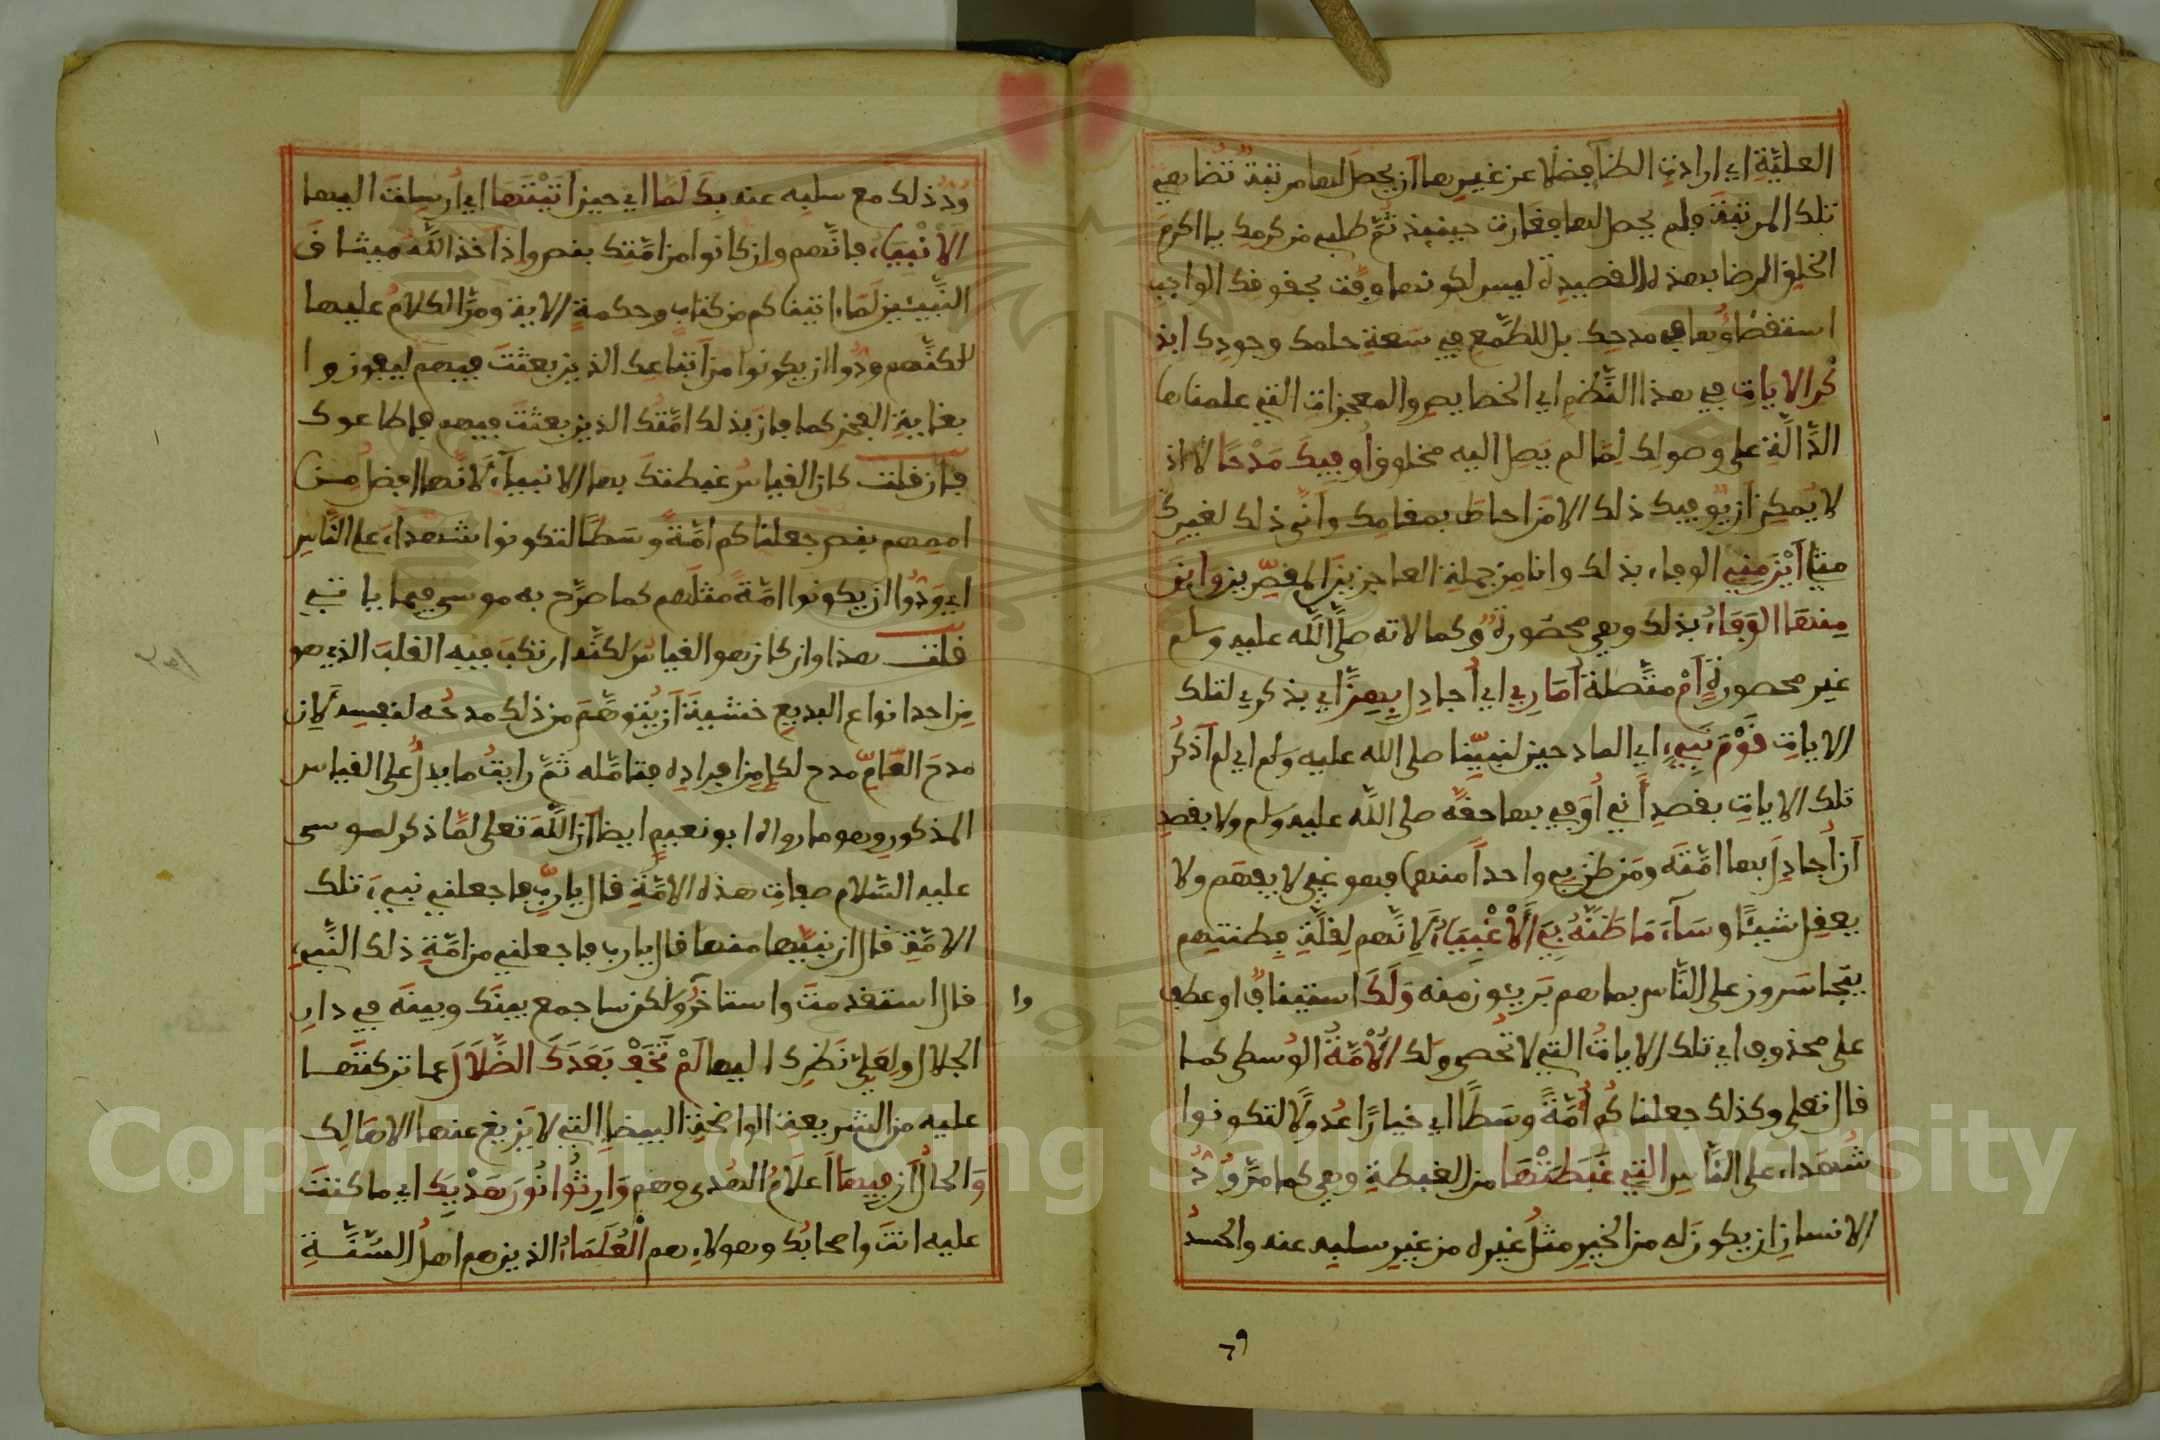 العليّة اي ارادت الظآ فضلا عن غيرها ان يحصل لها مرتبة تضاهي
تلك المرتبة فلم يحصل لها فغارت حينئذ ثم طلب من كرمك يا اكرم
الخلق الرضا بهذه القصيدة ليس لكونها وفت بحقوقك الواجب
استقصاؤها في مدحك بل للطمع في سعة حلمك وجودك ابذ
كر الايات في هذا النظم اي الخصايص والمعجزات التي علمناها
الدّالّة على وصولك لما لم يصل اليه مخلوق اوفيك مدحا لا اذ
لا يمكن ان يوفيك ذلك الا من احاط بمقامك وانّى ذلك لغيرك
مِنّا اَيْنَ مِنِّي الوفاء بذلك وانا من جملة العاجزين المقصّرين واين
مِنها الوَفَاءُ بذلك وهي محصورة وكمالاته صلّى اللّه عليه وسلم
غير محصورة اَمْ متّصلة اُمَارِي اي اُجادل بِهِنّ اي بذكري لتلك
الايات قَوْمَ نَبِيٍّ اي المادحين لنبيّنا صلى الله عليه وسلم اي لم آذكرُ
تلك الايات بقصد أني أُوَفِي بها حقّه صلى اللّه عليه وسلم ولا بقصد
اَن اُجادلَ بها امّتَه ومن ظنّ بي واحدا منهما فهو غبي لا يفهم ولا
يعقل شيئًا وسَآءَ مَا ظَنَّهُ بِيَ الأَغْبِيَاءُ لأنّهم لِقلّةِ فِطنتهم
يتجاسرون على النّاس بما هم بَريئون منه وَلَكَ استيناف او عطف
على محذوف اي تلك الايات التي لا تُحصى ولك الأمّةُ الوسطى كما
قال تعلى وكذلك جعلناكم أمّةً وسَطًا اي خيارًا عُدولا لتكونوا
شُهداء على النّاس التي غَبَطَتْهَا من الغبطة وهي كما مرّ وُدُّ
الانسان ان يكون له من الخير مثلُ غيره من غير سلبه عنه والحسدُ
٦٩
وُدُّ ذلك مع سلبه عنه بكَ لَمَّا اي حين اَتَيْتَهَا اي اُرسلتَ اليها
الأنْبيَاءُ فانّهم وان كانوا من امّتك بنص واذ اخذ اللّه ميثاق
النّبيئين لَمَا اتيناكم من كتاب وحكمة الاية ومرّ الكلامُ عليها
لاكنّهم ودّوا ان يكونوا من اَتباعك الذين بعثتَ فيهم ليفوزوا
بغاية الفخر كما فاز بذلك امّتُك الذين بعثتَ فيهم فاطاعوك
فان قلت كان القياسُ غبطتك بها الانبياءَ لأنّها افضلُ من
اممهم بنص جعلناكم امّةً وسَطًا لتكونوا شهداء على النّاس
اي ودّوا ان يكونوا امّةً مثلهم كما صرّح به موسى فيما ياتي
قلت هذا وان كان هو القياسُ لكنّه ارتكبَ فيه القلبَ الذي هو
من احد انواع البديع خشيةَ اَن يُتوهّمَ من ذلك مدحُه لنفسه لأن
مدحَ العامّ مدح لكل من افراده فتامّله ثمّ رايتُ ما يدلُّ على القياس
المذكور وهو ما رواه ابو نعيم ايضا انّ اللّهَ تعلى لمّا ذكر لموسى
عليه السّلام صفات هذه الامّة قال يا ربِّ فاجعلني نبيَ تلك
الامّة قال ان نبيّها منها قال يا رب فاجعلني من امّة ذلك النّبيء
قال استقدمتَ واستاخر ولكن ساجمع بينَك وبينَه في دار
وا
الجلال ولعَليّ نظرك اليها لَمْ تَخَفْ بَعْدَكَ الضّلَالَ عما تركتَها
عليه من الشريعة الواضحة البيضاِ التي لا يَزيغ عنها الا هَالِك
وَالحالُ ان فيهَا اَعلَامُ الهُدى وهم وَارِثُوا نُورَ هَدْيِكَ اي ما كنتَ
عليه انتَ واصحابُك وهولاء هم الْعُلَمَاءُ الذين هم اهلُ السُّنّةِ